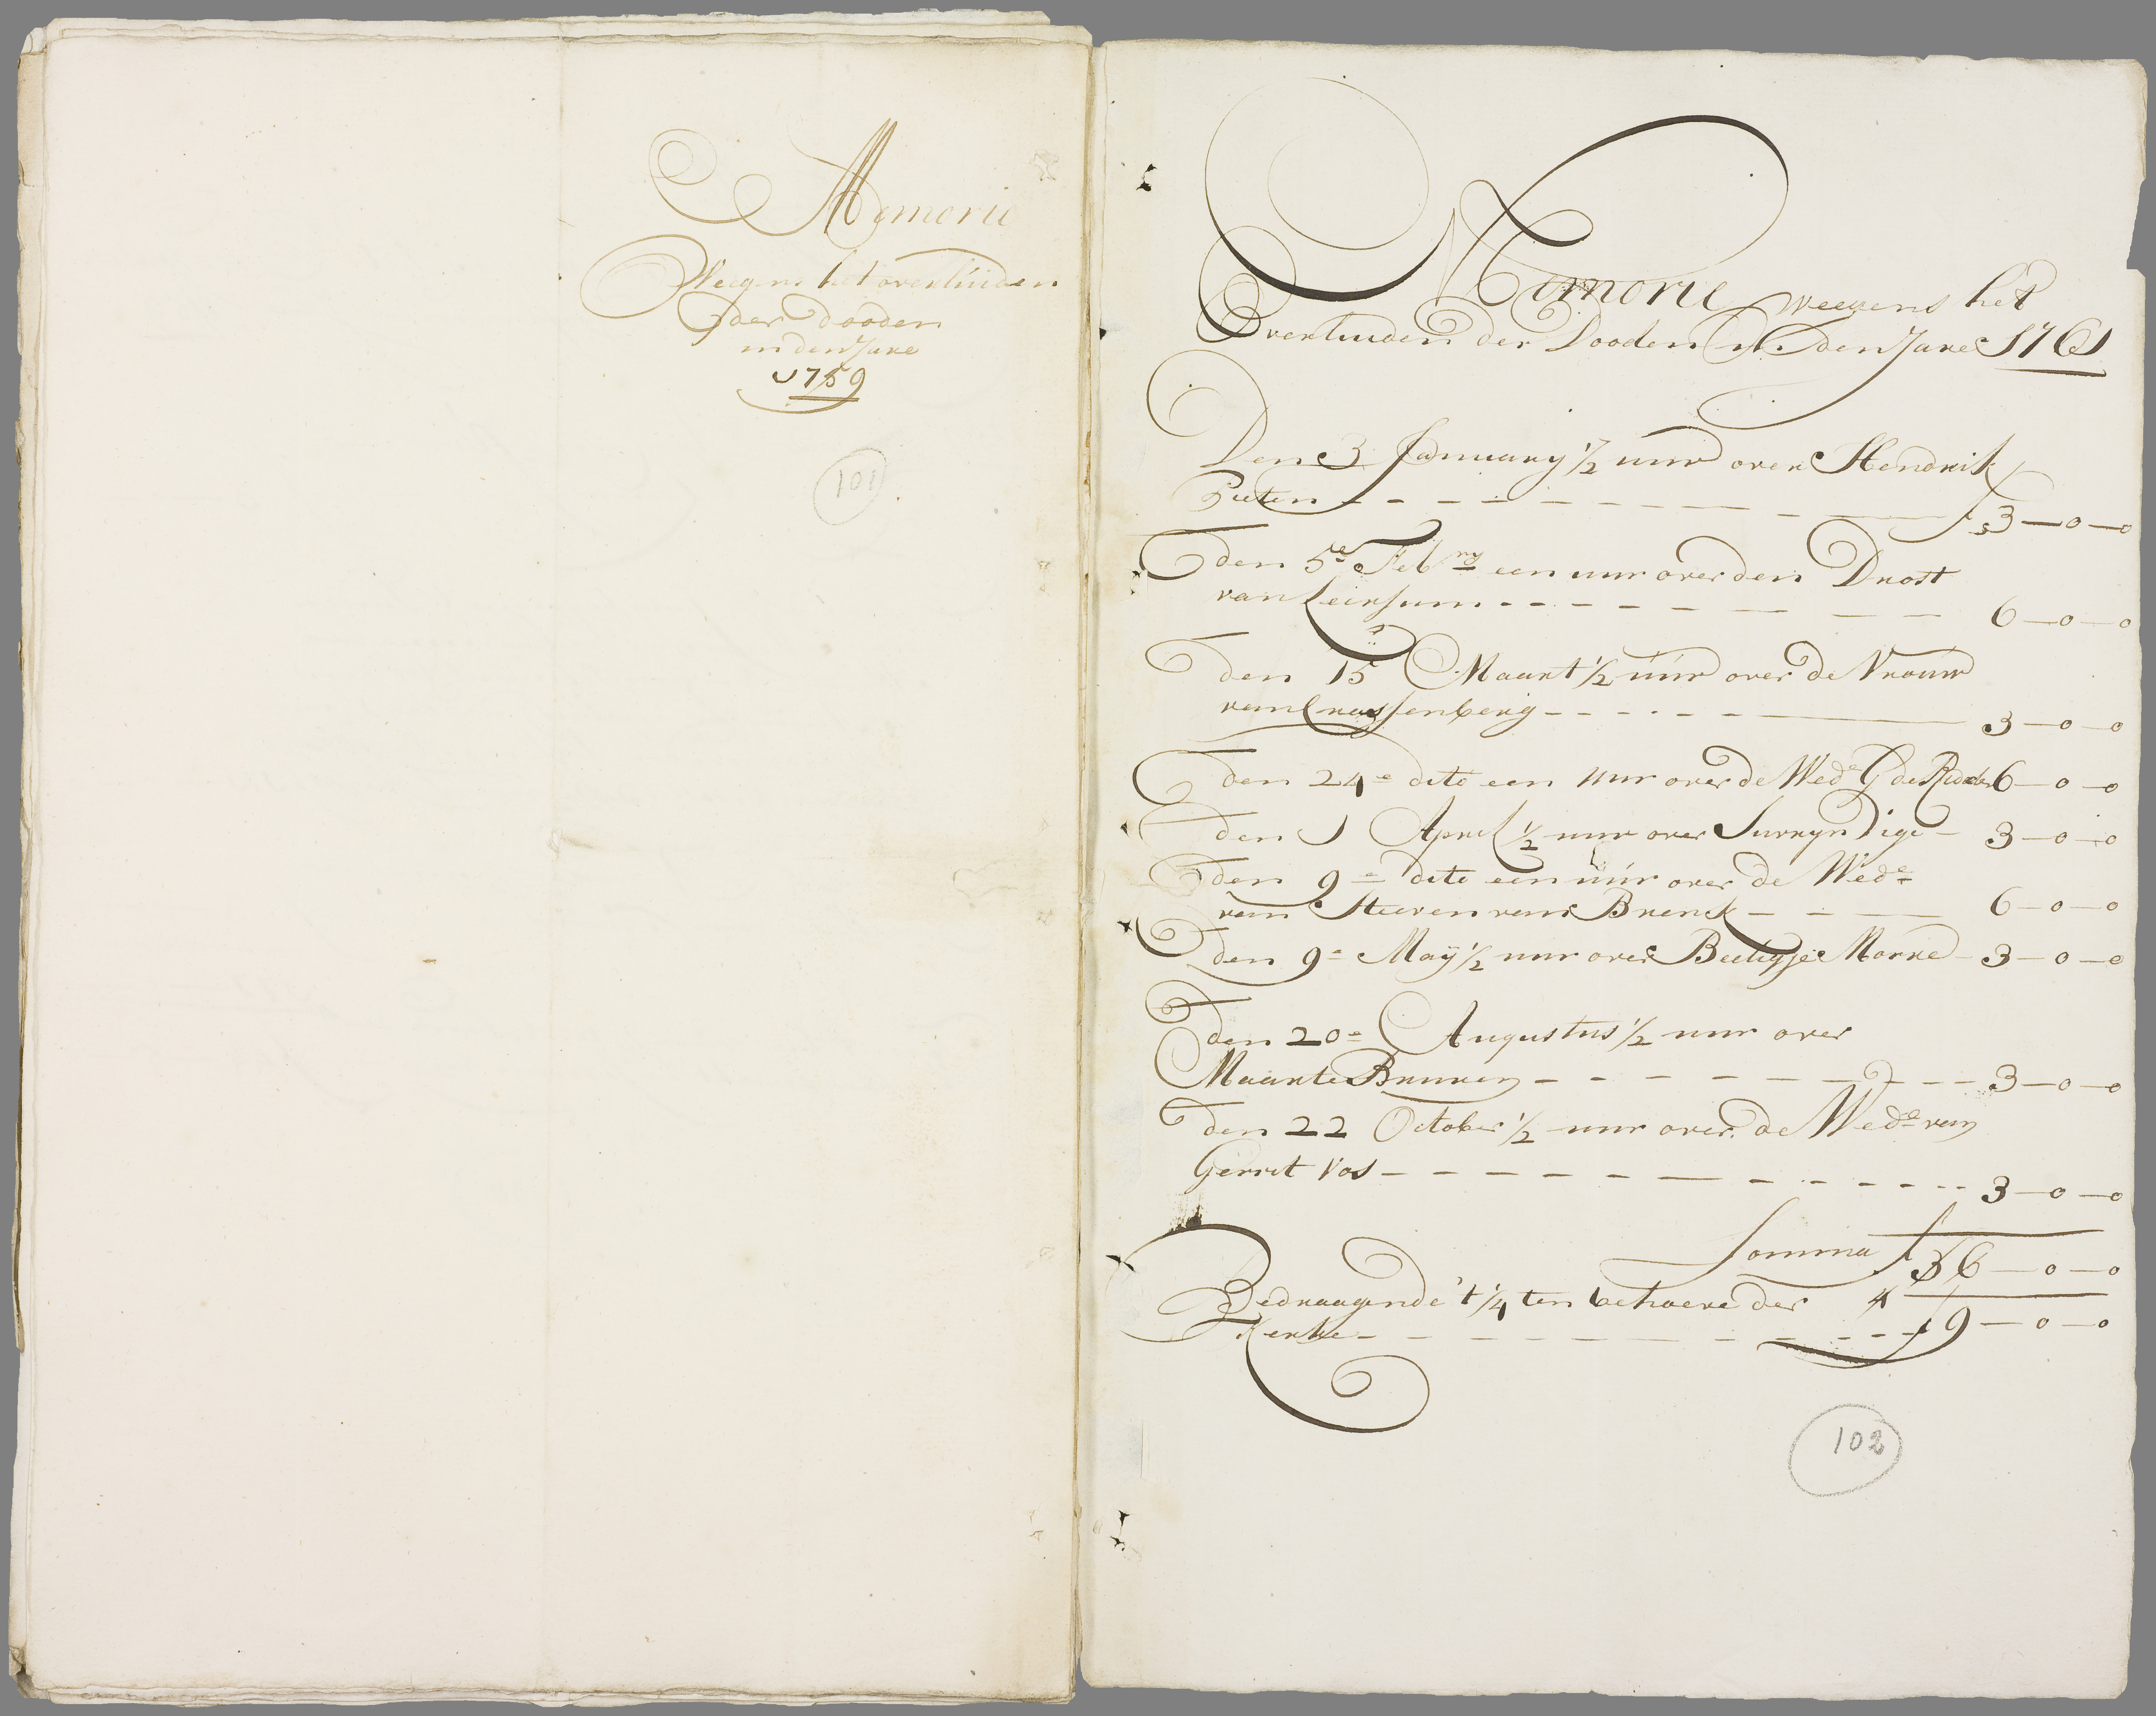 Memorie
Weegens het overluiden
der dooden
in den Jare
1759
101
Memorie weegens het
Overluiden der Dooden in den Jare 1761
Den 3 January 1/2 uur over Hendrik
Pieten - - - - - - - - ƒ 3-0-0
den 5e Febry een uur over den Drost
van Leersum - - - - - - - 6-0-0
den 15 Maart 1/2 uur over de Vrouw
van Crassenberg - - - - - - 3-0-0
den 24e dito een uur over de Wede G de Ridder 6-0-0
den 1 April 1/2 uur over - 3-0-0
den 9e dito een uur over de Wede
van Steeven van Brenck - - - 6-0-0
den 9e Maÿ 1/2 uur over Beeligje 3-0-0
den 20e Augustus 1/2 uur over
Maarte - - - - - - - - 3-0-0
den 22 October 1/2 uur over de Wede van
Gerrit Vos - - - - - - - - - - 3-0-0
Somma ƒ 36-0-0
Bedraagende 't 1/4 ten behoeve der 4
Kerke - - - - - - - - - ƒ 9-0-0
102